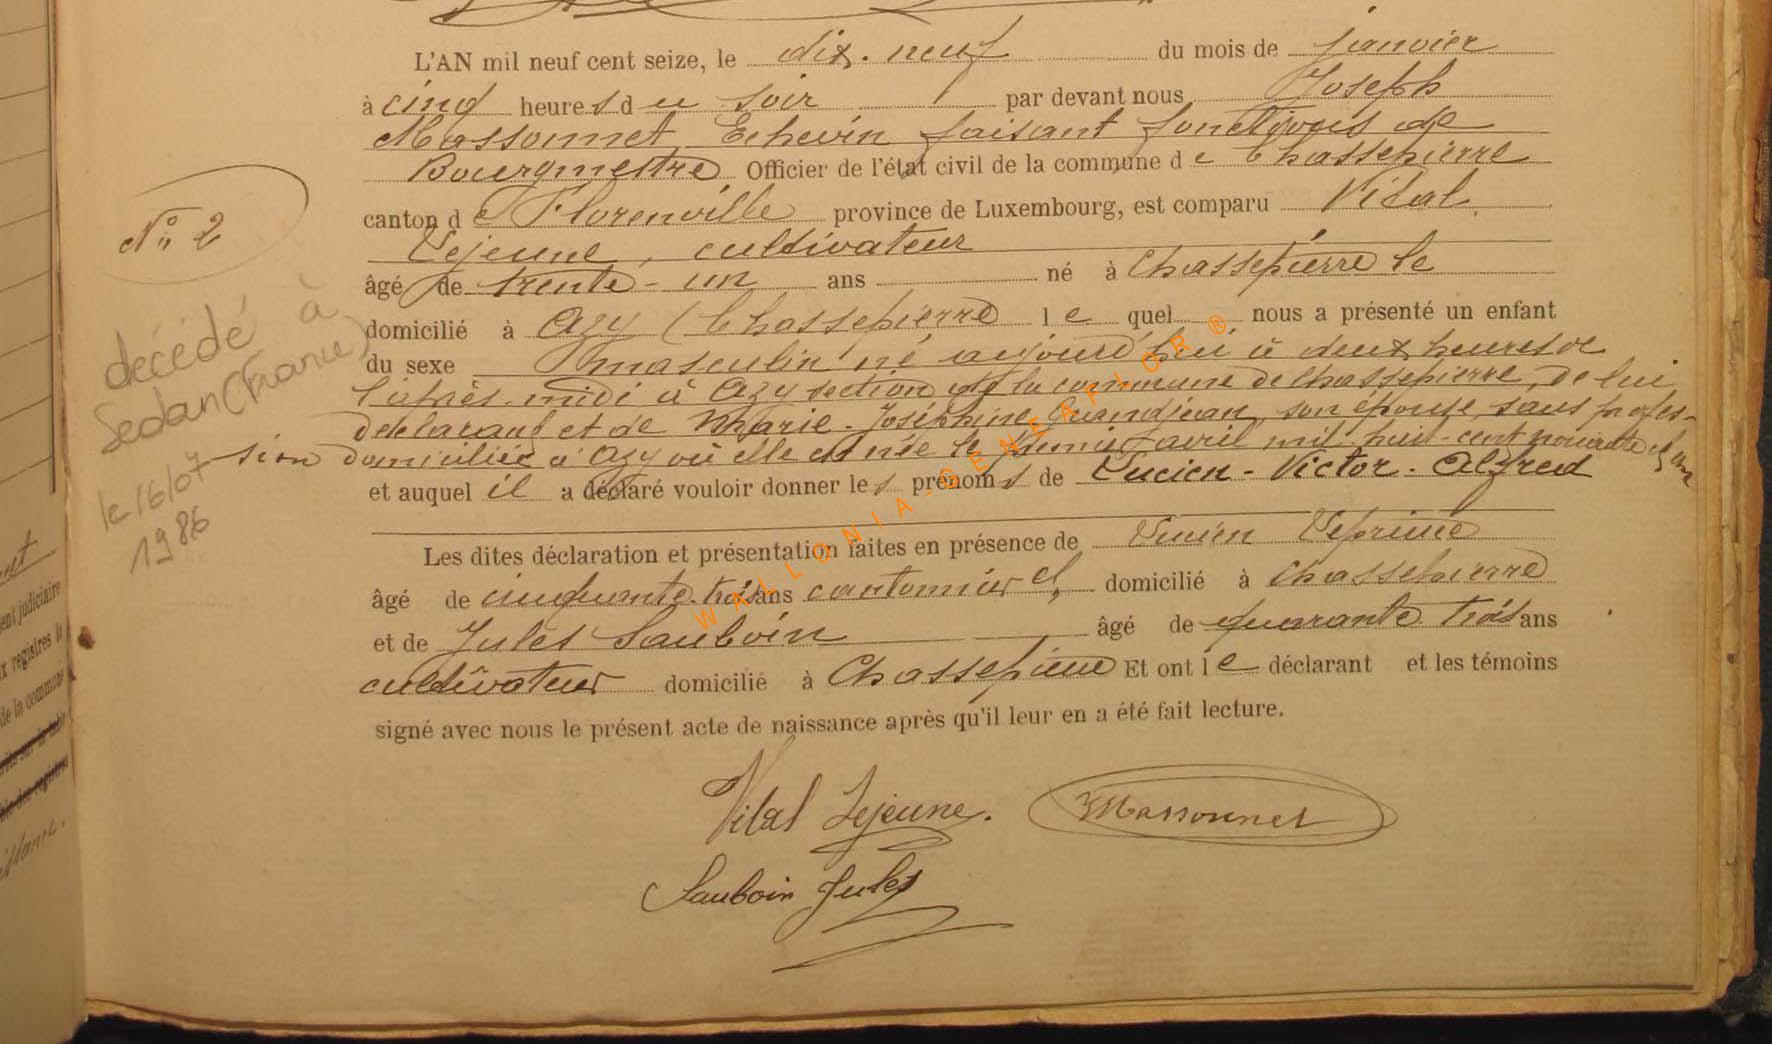 L'AN mil neuf cent seize, le dix-neuf du mois de janvier
à cinq heures du soir par devant nous Joseph
Massonnet Echevin faisant fonctions de
Bourgmestre Officier de l'état civil de la commune de Chassepierre
canton de Florenville province de Luxembourg, est comparu Vital
Lejeune, cultivateur
âgé de trente-un ans né à Chassepierre le
domicilié à Azy (Chassepierre) lequel nous a présenté un enfant
du sexe masculin né aujourd'hui à deux heures de
l'après-midi à Azy section de la commune de Chassepierre, de lui
déclarant et de Marie-Joséphine Grandjean, son épouse, sans profes-
sion domiciliée à Azy où elle est née le avril mil huit-cent nonante et un
et auquel il a déclaré vouloir donner les prénoms de Lucien-Victor-Alfred
Les dites déclaration et présentation faites en présence de Lucien
âgé de cinquante-trois ans cantonnier domicilié à Chassepierre
et de Jules Sauboin âgé de quarante trois ans
cultivateur domicilié à Chassepierre Et ont le déclarant et les témoins
signé avec nous le présent acte de naissance après qu'il leur en a été fait lecture.
Vital Lejeune. Massonnet
Sauboin Jules
N° 2
décédé à
Sedan (France)
le 16/07
1986
judiciaire
registres
de la commune
WALLONIA-GENEAFLOR ®